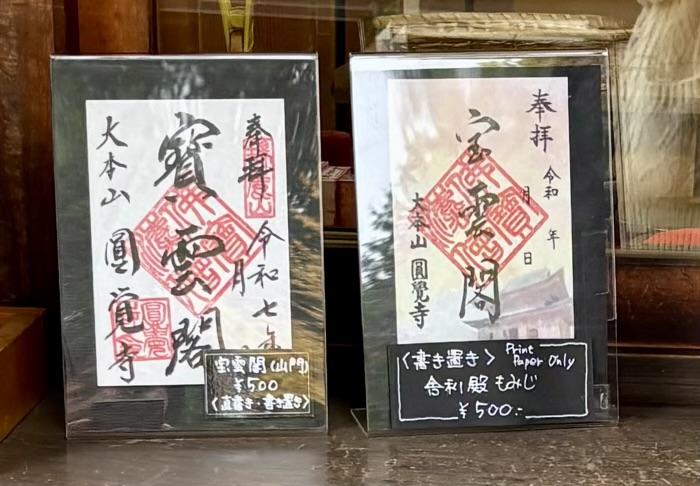 奉拝
令和七年
月
寳雲閣
大本山
圓覺寺
宝雲閣(山門)
¥500
〈直書き・書き置き〉
奉拝
令和 年
月 日
宝雲閣
大本山
圓覺寺
〈書き置き〉 Print Paper Only
舎利殿 もみじ
¥500.-